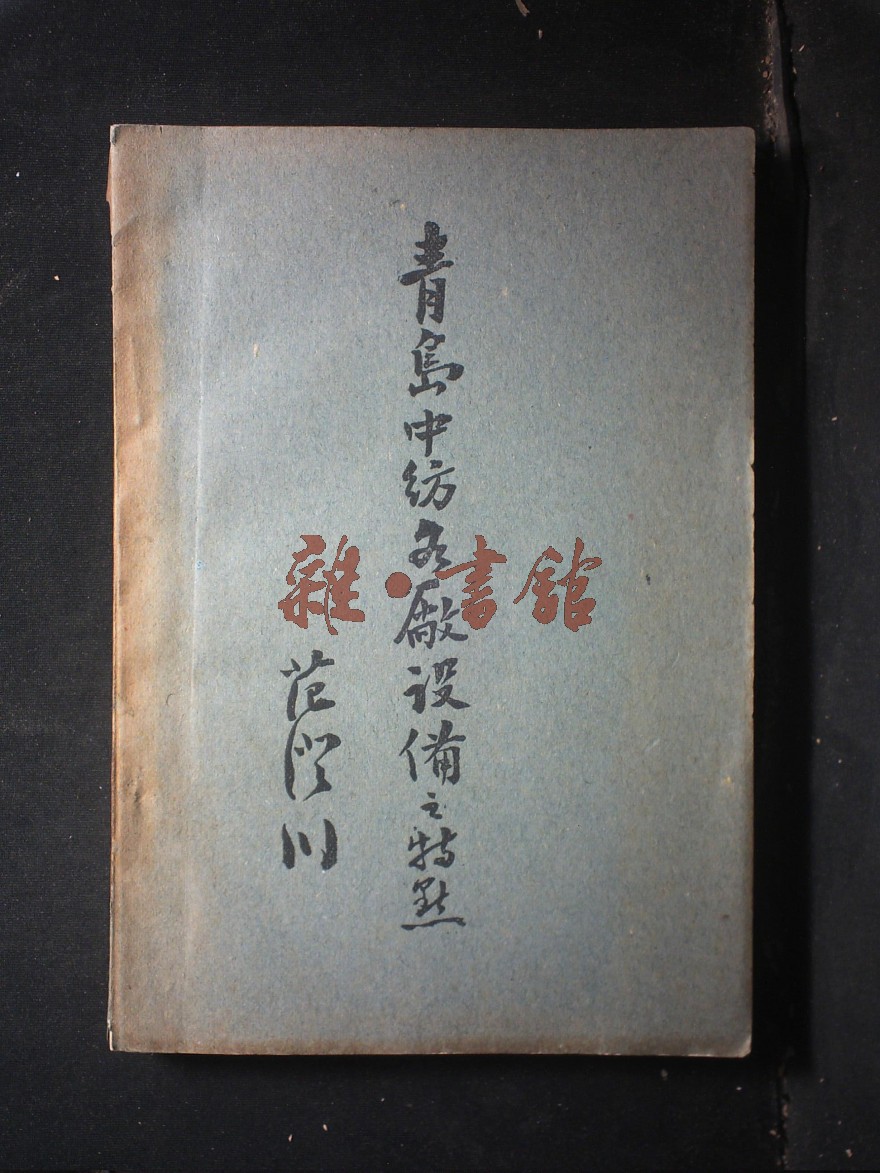 青島中紡各廠設備之特點
范澄川
雜·書館